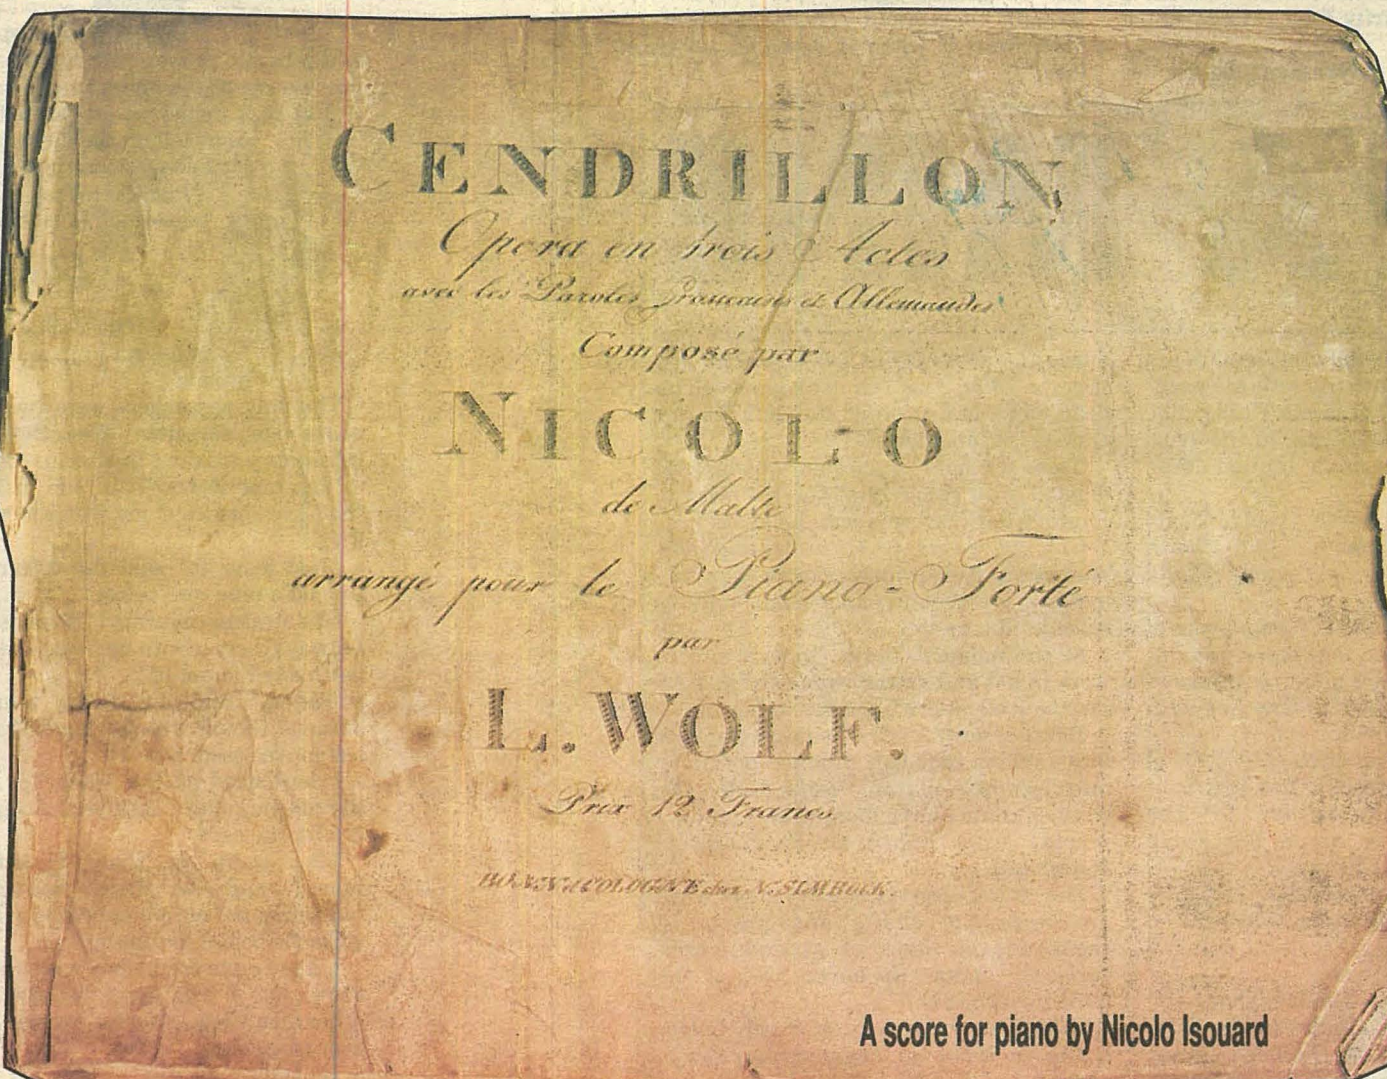 CENDRILLON
Opera en trois Actes
avec les Paroles francaises et Allemandes
Composé par
NICOLO
de Malte
arrangé pour le Piano-Forté
par
L. WOLF.
Prix 12 Francs
BONN et COLOGNE chez N. SIMROCK.
A score for piano by Nicolo Isouard